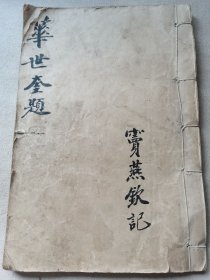 華世奎題
竇燕欽記